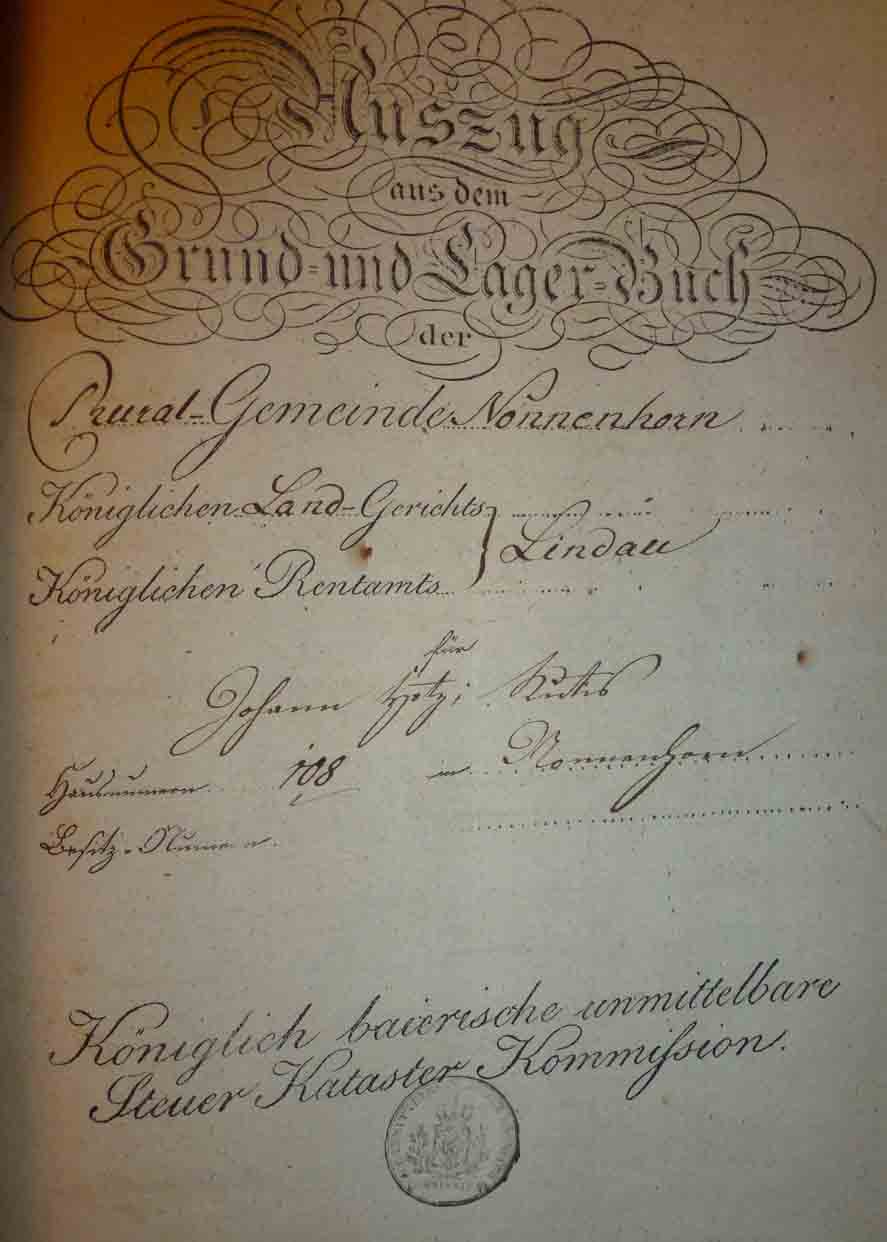 Auszug
aus dem
Grund- und Lager-Buch
der
Rural-Gemeinde Nonnenhorn
Königlichen Land-Gerichts
Lindau
Königlichen Rentamts
für
Johann
Hausnumern 108 in Nonnenhorn
Besitz-Numern
Königlich baierische unmittelbare
Steuer Kataster Kommission.